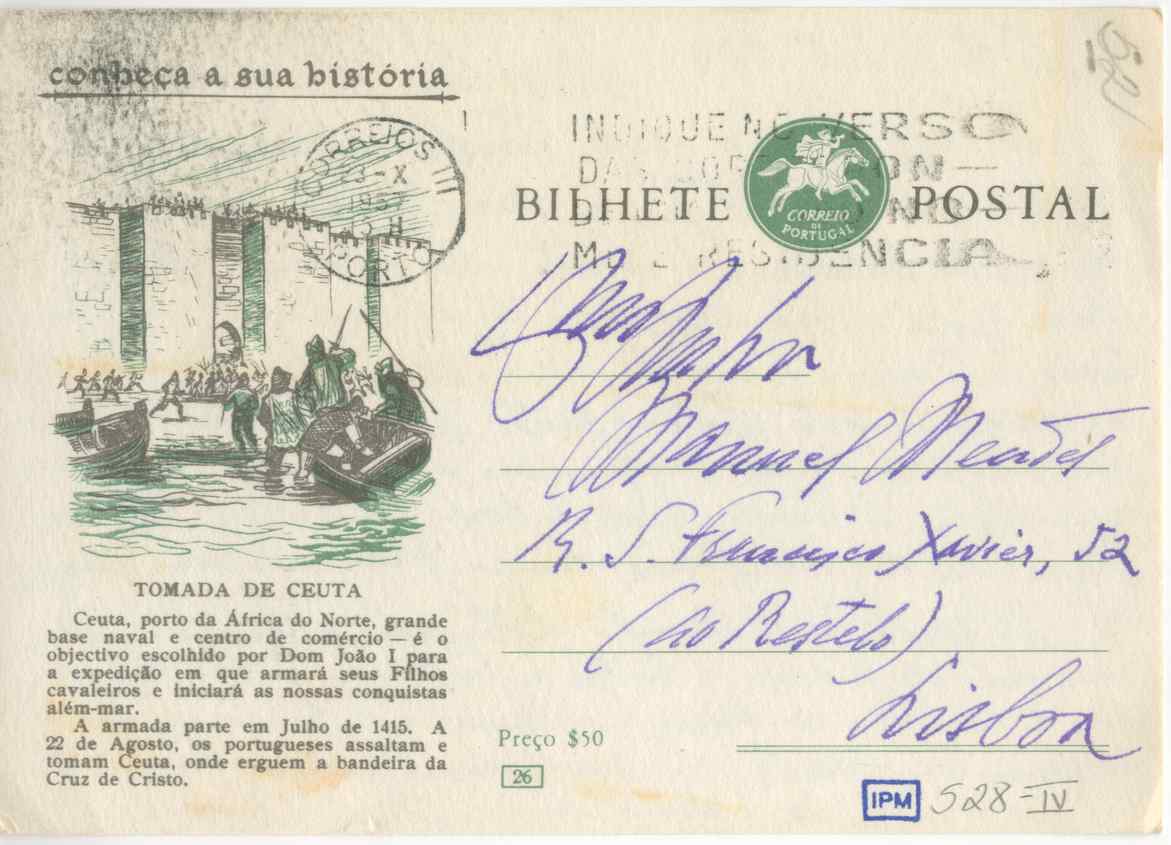 conheça a sua história
CORREIOS III
23-X
PORTO
INDIQUE NO VERSO
BILHETE POSTAL
CORREIO
DE
PORTUGAL
RESIDENCIA
Manuel Mendes
R. S. Francisco Xavier, 52
(ao Restelo)
Lisboa
TOMADA DE CEUTA
Ceuta, porto da África do Norte, grande
base naval e centro de comércio — é o
objectivo escolhido por Dom João I para
a expedição em que armará seus Filhos
cavaleiros e iniciará as nossas conquistas
além-mar.
A armada parte em Julho de 1415. A
22 de Agosto, os portugueses assaltam e
tomam Ceuta, onde erguem a bandeira da
Cruz de Cristo.
Preço $50
26
IPM
528-IV